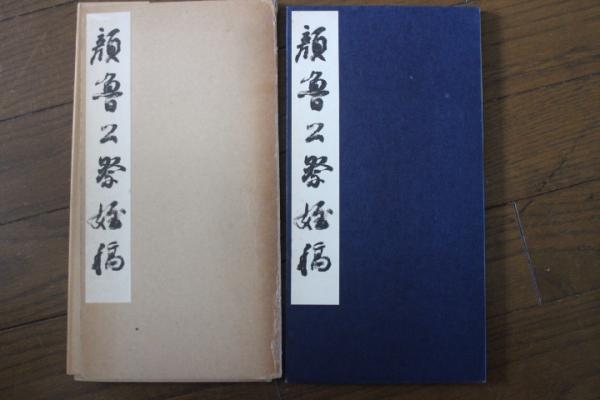 顏魯公祭姪稿
顏魯公祭姪稿